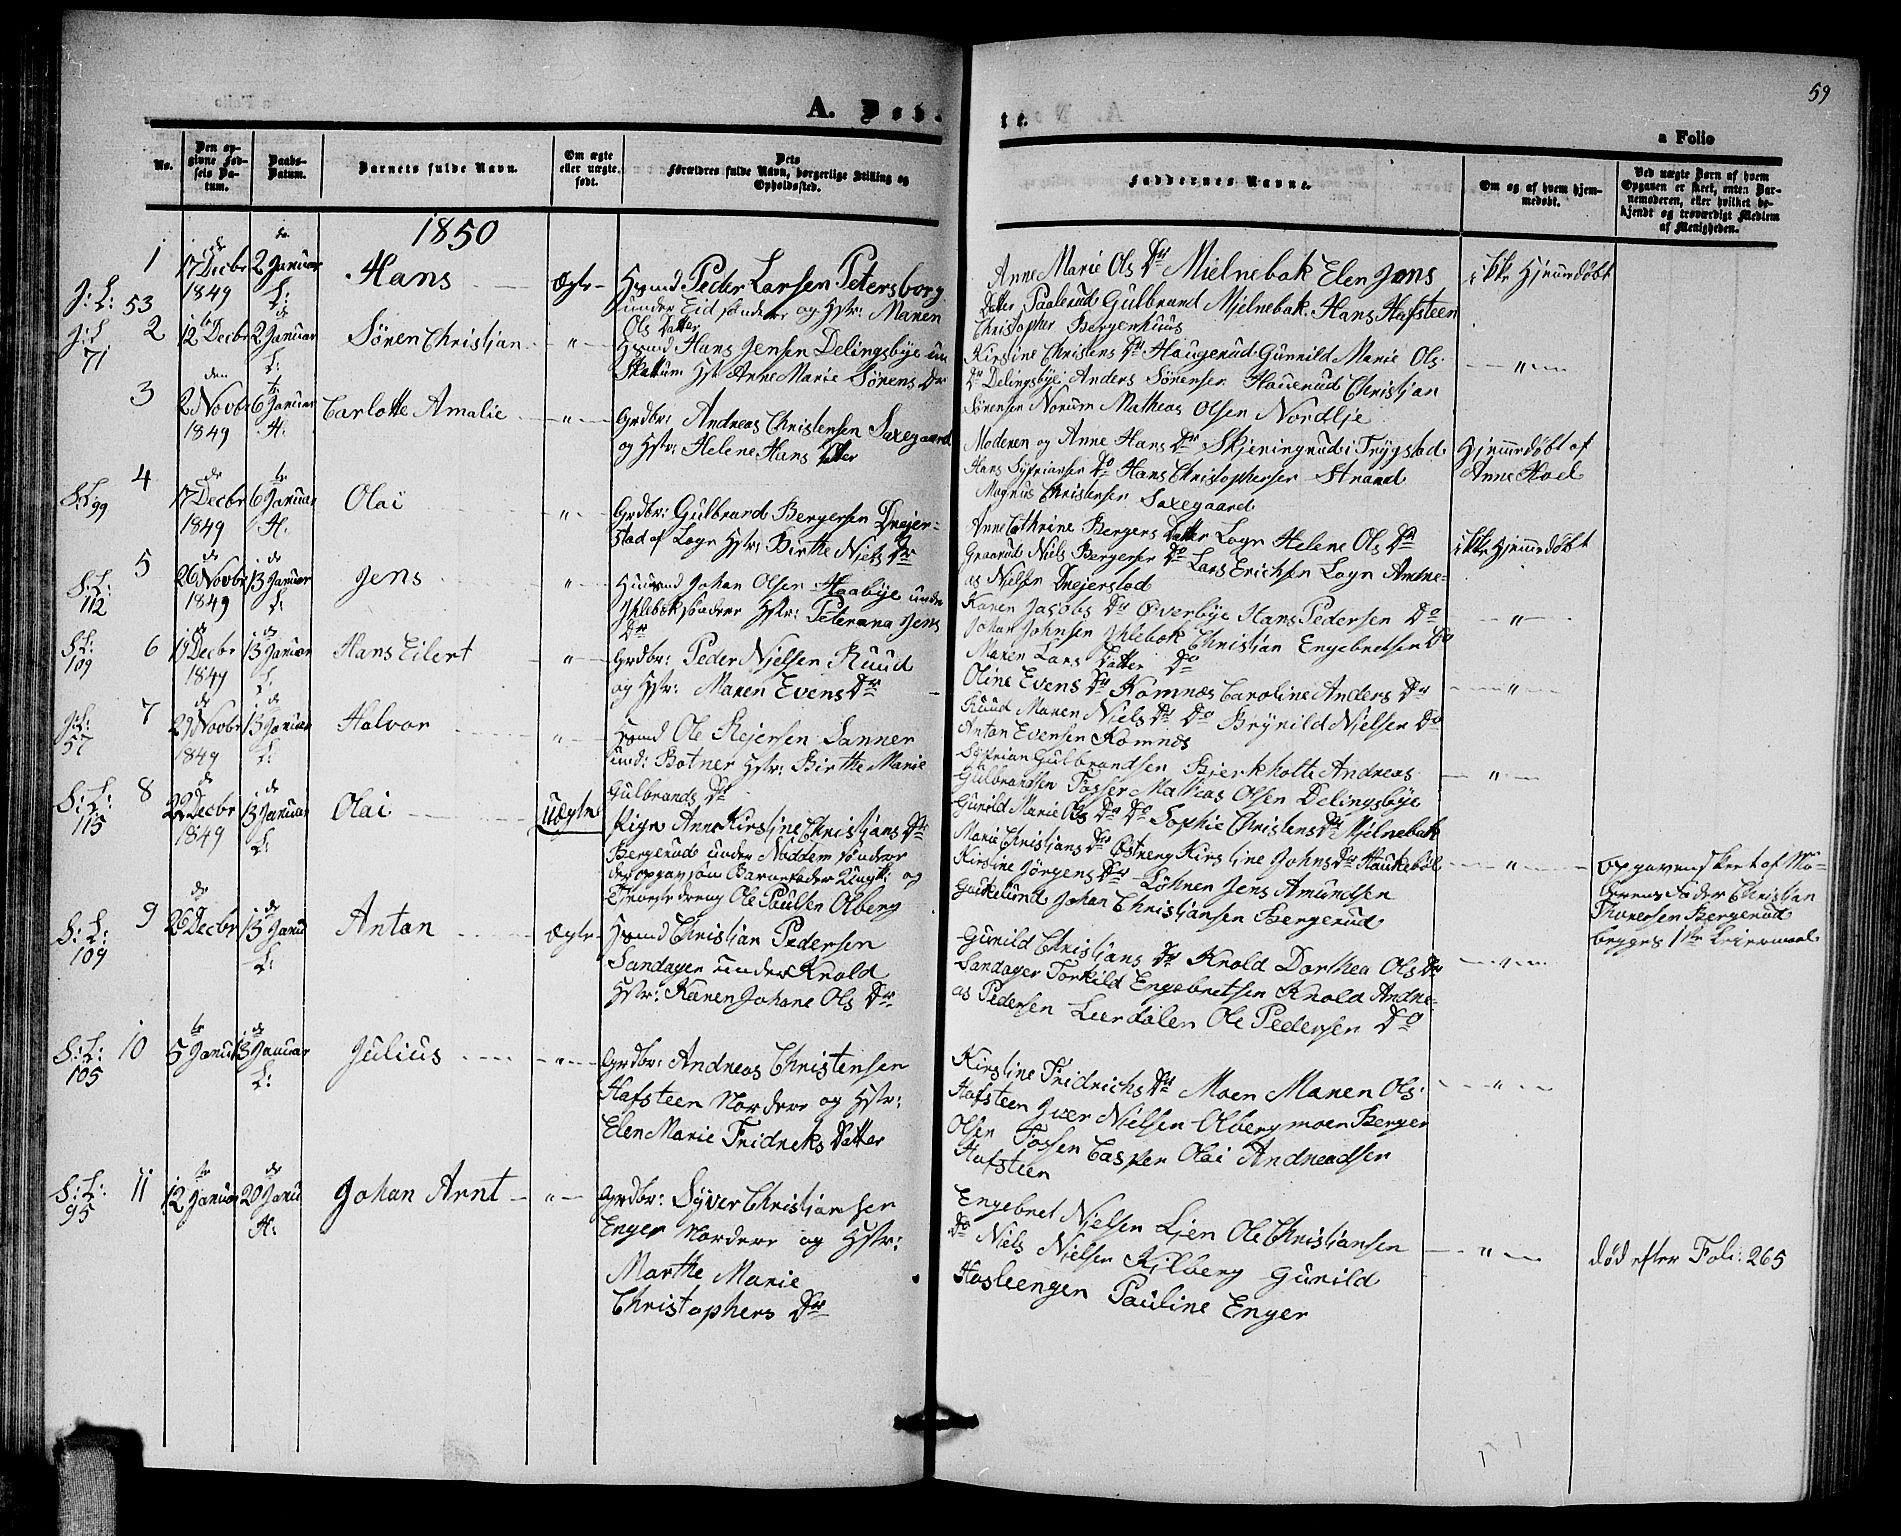 59
A. Døb-
te.
a Folio
No.
Den op-
givne Fød-
sels Da-
tum.
Daabs-
Datum.
Barnets fulde Navn.
Om ægte
eller uægte
født.
Dets
Forældres fulde Navn, borgerlige Stilling og
Opholdssted.
Faddernes Navne.
Om og af hvem hjem-
medøbt.
Ved uægte Børn af hvem
Opgaven er skeet, enten Bar-
nemoderen, eller hvilket be-
kjendt og troværdigt Medlem
af Menigheden.
1850
1
17 Decbr
1849
2 Januar
L:
Hans
Ægte
Huusmd Peder Larsen Petersborg
under Eid søndre og Hstr: Maren
Ols Datter
Anne Marie Ols Dtr Mielnebak Elen Jens
Datter Paalerud Gulbrand Mjelnebak. Hans Hafsteen
Christopher Bergenhuus
ikke hjemmedøbt
J: L: 53
2
J: L
71
12 Decbr
2 Januar
L:
Søren Christian
"
Huusmd Hans Jensen Delingsbye un
Skattum Hstr Anne Marie Sørens Dtr
Kirstine Christens Dtr Haugerud Gunnild Marie Ols-
Dtr Delingsbye Anders Sørensen Hauerud Christian
Sørensen Norum Mathias Olsen Nordlje
"
3
den
2 Novbr
1849
6 Januar
H.
Carlotte Amalie
"
Grdbr: Andreas Christensen Saxegaard
og Hstr: Helene Hans Datter
Moderen og Anne Hans Dtr Skjeningrud i Trygstad
Hans Syfriansen Do Hans Christophersen Strand
Magnus Christensen Saxegaard
Hjemmedøbt af
Anne Hoel
4
S: L: 99
17 Decbr
1849
6 Januar
H.
Olai
"
Grdbr: Gulbrand Bergersen Drejer-
stad af Logn Hstr: Birthe Niels Dtr
Anne Cathrine Bergers Datter Logn Helene Ols Dtr
Graarud Niels Bergersen Do Lars Erichsen Logn Andre-
as Nielsen Drejerstad
ikke hjemmedøbt
5
S: L:
112
26 Novbr
1849
13 Januar
L:
Jens
"
Huusmd Johan Olsen Haabye under
Ihlebæk søndere Hstr: Peterana Jens
Dtr
Karen Jacobs Dtr Øverbye Hans Pedersen Do
Johan Johnsen Ihlebæk Christian Engebretsen Do
Maren Lars Datter Do
"
6
S: L:
109
19 Decbr
1849
13 Januar
L.
Hans Eilert
"
Grdbr: Peder Nielsen Ruud
og Hstr: Maren Evens Dtr
Oline Evens Dtr Komnæs Caroline Anders Dtr
Ruud Maren Niels Dtr Do Brynild Nielsen Do
Anton Evensen Komnæs
"
7
J: L:
57
29 Novbr
1849
13 Januar
L:
Halvor
"
Huusmd Ole Rejersen Sanner
und: Botner Hstr: Birthe Marie
Gulbrands Dtr
Syfrian Gulbrandsen Bjerkholte Andreas
Gulbrandsen Fosser Mathias Olsen Delingsbye
Gunild Marie Ols Dtr Do Sophie Christens Dtr Mjelnebak
"
8
S: L:
115
29 Decbr
1849
13 Januar
L:
Olai
Uægte
Pige Anne Kirstine Christians Dtr
Bergerud under Noddem søndere
der opgav som Barnefader Ungk: og
Tjenestedreng Ole Paulsen Olberg
Marie Christians Dtr Østreng Kirstine Johns Dtr Haukebøl
Kirstine Jörgens Dtr Løhnen Jens Amundsen
Gaukelund Johan Christiansen Bergerud
"
Opgaven skeet af Mo-
derens Fader Christian
Thoresen Bergerud
begges 1ste Leiermaal
9
S: L:
109
26 Decbr
13 Janu
L:
Antan
Ægte
Huusmd Christian Pedersen
Sandager under Knold
Hstr: Karen Johane Ols Dtr
Gunild Christians Dtr Knold Dorthea Ols Dtr
Sandager Torkild Engebretsen Knold Andre-
as Pedersen Leerdalen Ole Pedersen Do
"
10
S: L:
105
5 Janu
13 Januar
L:
Julius
"
Grdbr: Andreas Christensen
Hafsteen Nordere og Hstr:
Elen Marie Fridreks Datter
Kirstine Fridrichs Dtr Moen Maren Ols.
Hafsteen Iver Nielsen Olbergmoen Berger
Olsen Fossen Casper Olai Andreasen
Hafsteen
"
11
S: L:
95
12 Januar
20 Janu
H:
Johan Arnt
"
Grdbr: Syver Christiansen
Enger Nordere og Hstr:
Marthe Marie
Christophers Dtr
Engebret Nielsen Lien Ole Christiansen
Do Niels Nielsen Kilberg Gunild
Hasleengen Pauline Enger
"
død efter Foli: 265